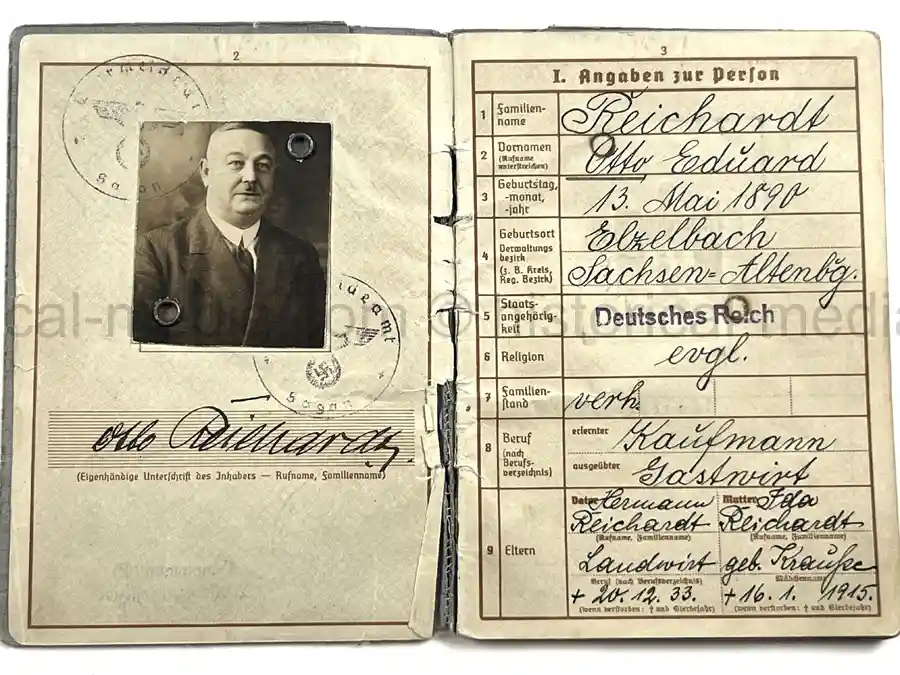 2
Sagan
Sagan
Otto Reichardt
(Eigenhändige Unterschrift des Inhabers — Rufname, Familienname)
3
I. Angaben zur Person
1 Familien-
name
Reichardt
2 Vornamen
(Rufname
unterstreichen)
Otto Eduard
3 Geburtstag,
-monat,
-jahr
13. Mai 1890
4 Geburtsort
Verwaltungs
bezirk
(z. B. Kreis,
Reg. Bezirk)
Elzelbach
Sachsen=Altenbg.
5 Staats-
angehörig-
keit
Deutsches Reich
6 Religion
evgl.
7 Familien-
stand
verh.
8 Beruf
(nach
Berufs-
verzeichnis)
erlernter Kaufmann
ausgeübter Gastwirt
9 Eltern
Vater Hermann
Reichardt
(Rufname, Familienname)
Landwirt
Beruf (nach Berufsverzeichnis)
+ 20. 12. 33.
(wenn verstorben: † und Sterbejahr)
Mutter Ida
Reichardt
(Rufname, Familienname)
geb. Krauße
Mädchenname
+ 16. 1. 1915.
(wenn verstorben: † und Sterbejahr)